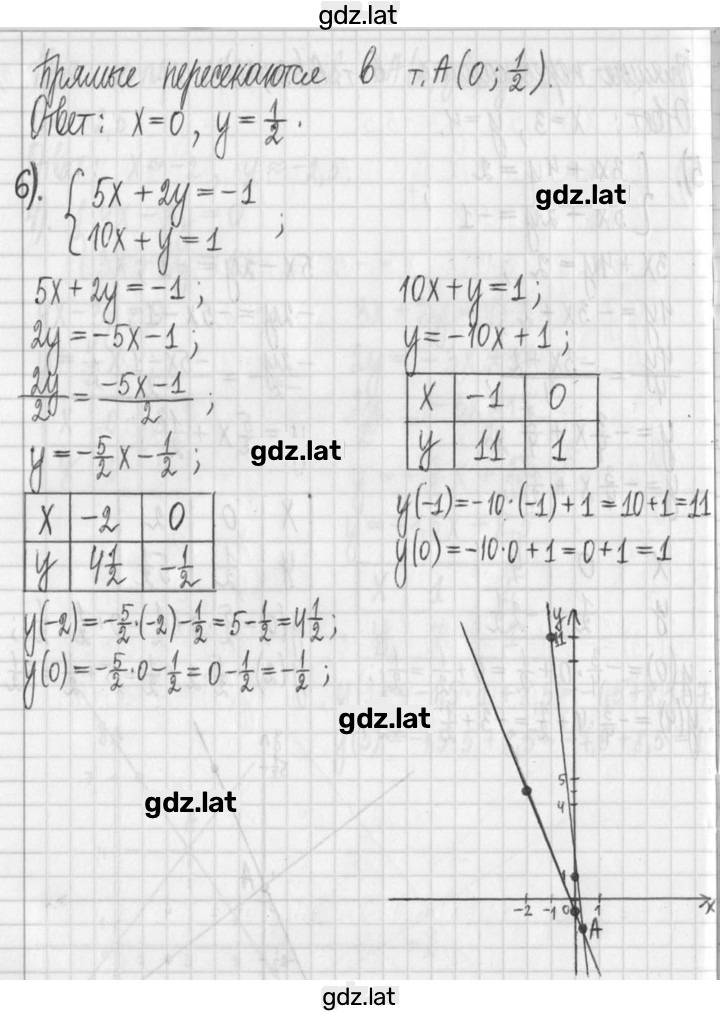 gdz.lat
Прямые пересекаются в т. А(0; 1/2).
Ответ: x=0, y=1/2.
6). { 5x+2y=-1
10x+y=1 ;
gdz.lat
5x+2y=-1;
2y=-5x-1;
2y/2 = (-5x-1)/2 ;
y=-5/2x-1/2 ;
x -2 0
y 4 1/2 -1/2
y(-2)=-5/2·(-2)-1/2=5-1/2=4 1/2 ;
y(0)=-5/2·0-1/2=0-1/2=-1/2 ;
gdz.lat
10x+y=1;
y=-10x+1;
x -1 0
y 11 1
y(-1)=-10·(-1)+1=10+1=11
y(0)=-10·0+1=0+1=1
gdz.lat
y
11
5
4
1
-2 -1 0 1 x
A
gdz.lat
gdz.lat